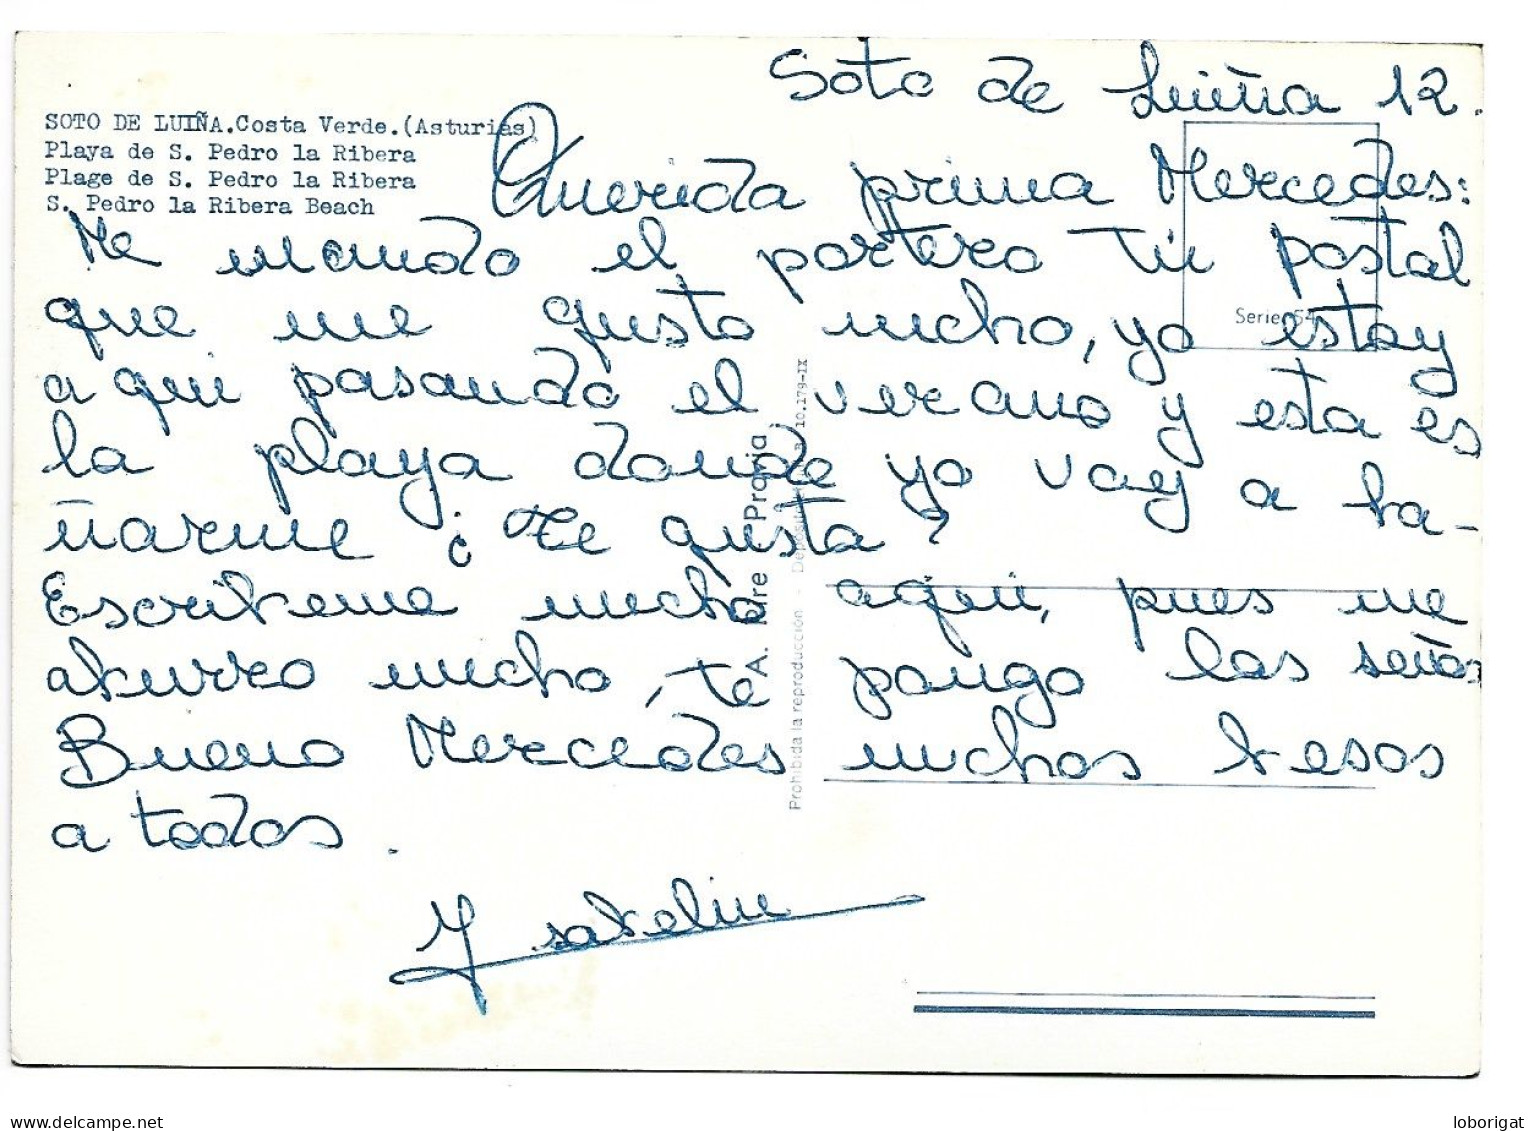 Soto de Luiña 12.
SOTO DE LUIÑA.Costa Verde.(Asturias)
Playa de S. Pedro la Ribera
Plage de S. Pedro la Ribera
S. Pedro la Ribera Beach
Querida prima Mercedes:
Me mando el portero tú postal
que me gusto mucho, yo estoy
a qui pasando el verano y esta es
la playa donde yo voy a ba-
ñarme ¿Te gusta?
Escribeme mucho aqui, pues me
aburro mucho, te pongo las señas
Bueno Mercedes muchos besos
a todos.
Isabelin
Serie 54
A. Aire Propia
Prohibida la reproducción - Depósito 10.179-IX
loborigat